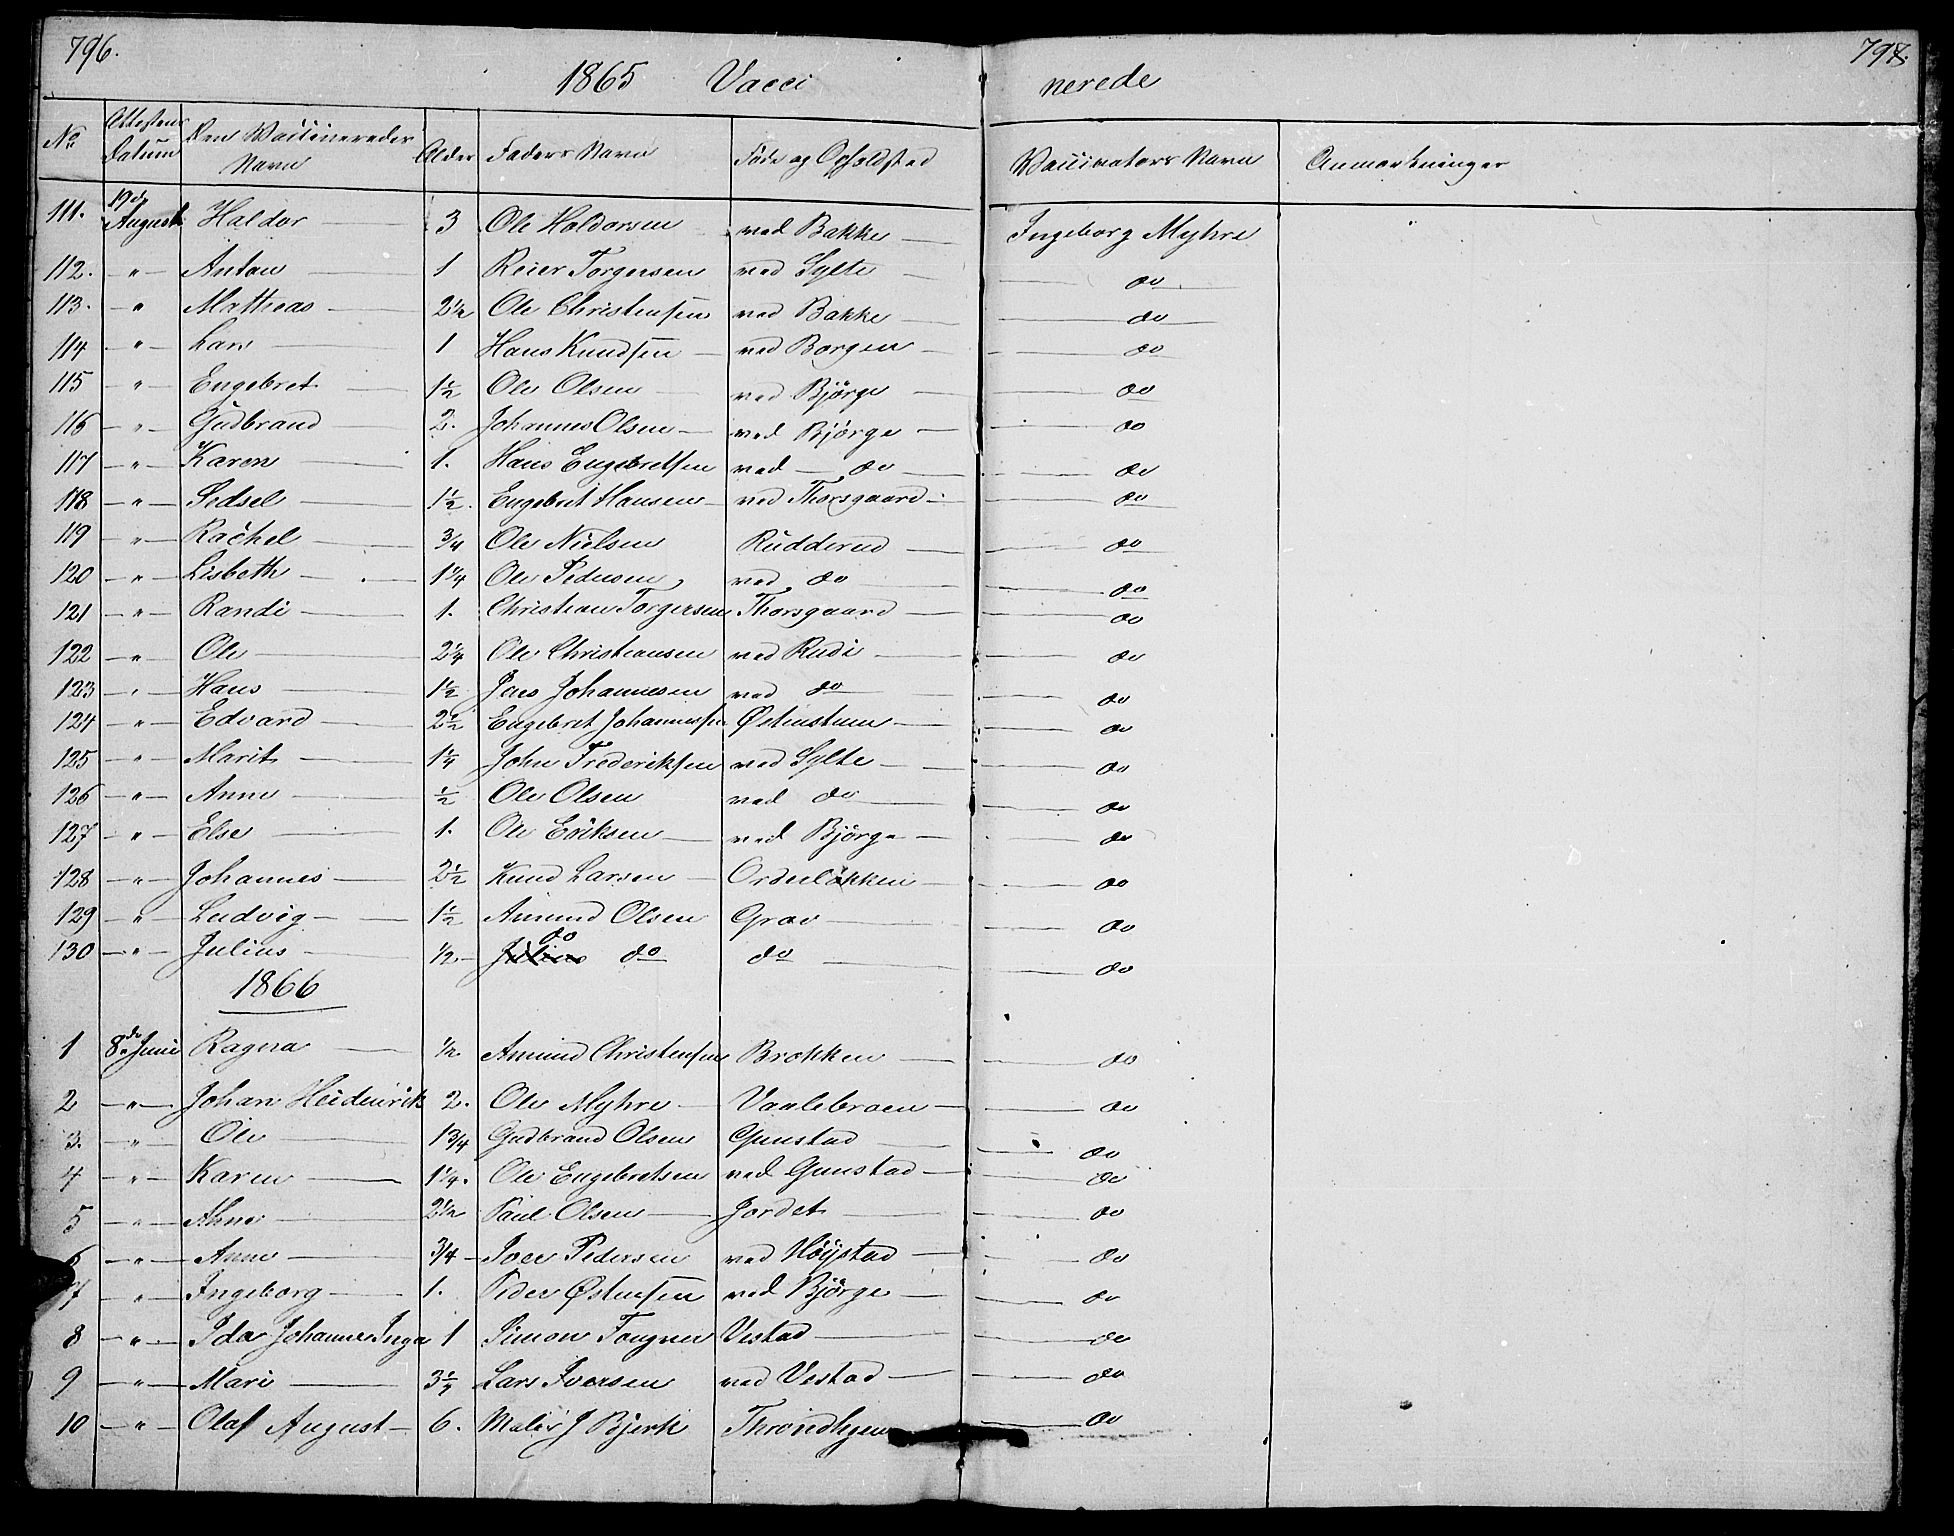 796. 797.
1865 Vacci nerede
No Attestens Datum Den Vaccineredes Navn Alder Faders Navn Føde og Opholdsted Vaccinators Navn Anmærkninger
111. 19d August Haldor 3 Ole Haldorsen ved Bakke Ingeborg Myhre
112. " Anton 1 Reier Torgersen ved Sylte do
113. " Mattheas 2 1/2 Ole Christensen ved Bakke do
114 " Lars 1 Hans Knudsen ved Borgen do
115 " Engebret 1 1/2 Ole Olsen ved Björge do
116 " Gudbrand 2. Johannes Olsen ved Björge do
117 " Karen 1. Hans Engebretsen ved do do
118 " Sedsel 1 1/2. Engebret Hansen ved Thorsgaard do
119 " Rachel 3/4 Ole Nielsen Rudderud do
120 " Lisbeth 1 1/4 Ole Pedersen ved do do
121 " Randi 1. Christian Torgersen Thorsgaard do
122 " Ole 2 1/4 Ole Christiansen ved Rudi do
123 " Hans 1 1/2 Jens Johannesen ved do do
124 " Edvard 2 1/2 Engebret Johannessen Østenstuen do
125 " Marit 1 1/4 John Frederiksen ved Sylte do
126 " Anne 1/2 Ole Olsen ved do do
127 " Else 1. Ole Eriksen ved Björge do
128 " Johannes 2 1/2 Knud Larsen Orderløkken do
129 " Ludvig 1 1/2 Amund Olsen Grav do
130 " Julius 1/2 Julius do do do do
1866
1 8de Juni Ragna 1/2 Amund Christensen Brækken do
2 " Johan Heidenrik 2. Ole Myhre Vaalebroen do
3. " Ole 1 3/4 Gudbrand Olsen Gunstad do
4 " Karen 1 1/4. Ole Engebretsen ved Gunstad do
5 " Ahne 2 1/2 Paul Olsen Jordet do
6 " Anne 3/4 Iver Pedersen ved Höystad do
7 " Ingeborg 1. Peder Østensen ved Björge do
8 " Ida Johanne Inga 1 Simon Fougner Vestad do
9 " Mari 3 1/2 Lars Iversen ved Vestad do
10 " Olaf August 6. Maler J Bjerke do